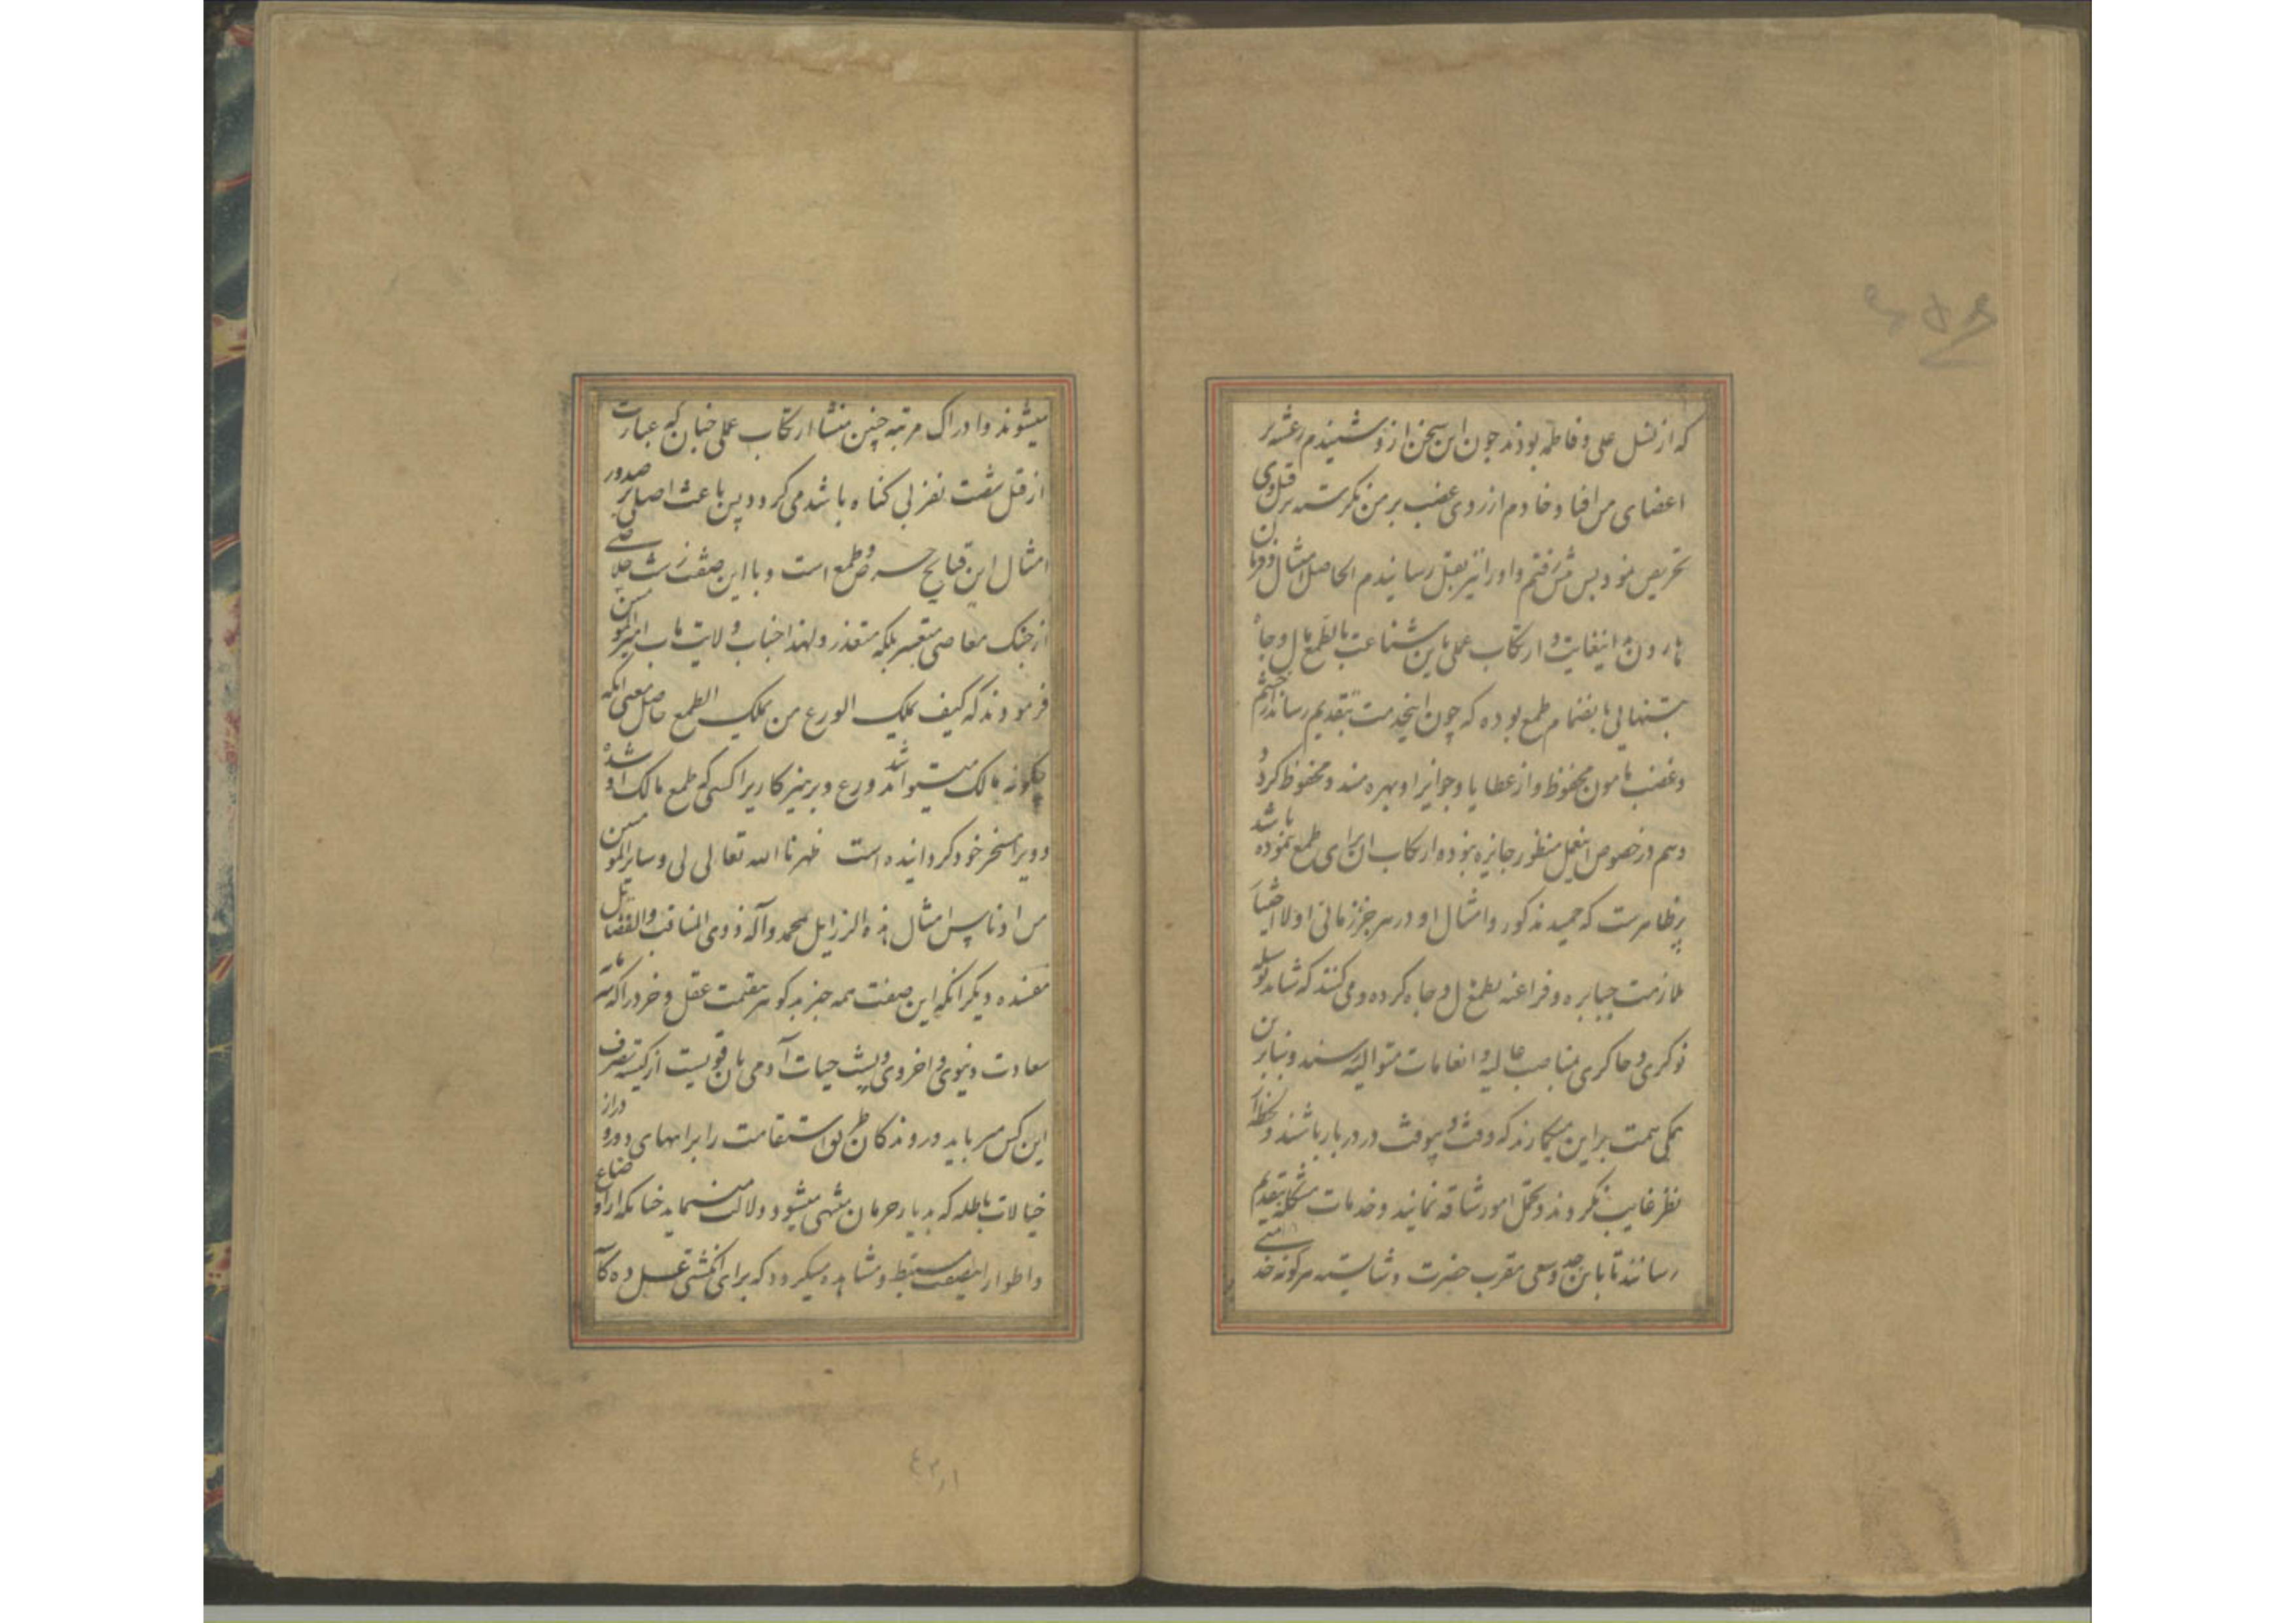 که از نسل علی و فاطمه بودند چون این سخن از و شنیدم رعشه بر
اعضای من افتاد و خادم از روی غضب بر من نگریسته بر قتل وی
تحریص نمود پس پیش رفتم و او را نیز بقتل رسانیدم الحاصل امتثال فرمان
هارون و ارتکاب عملی باین شناعت بالطمع مال و جاه
بتنهایی یا بانضمام طمع بوده که چون اینخدمت بتقدیم رساند از خشم
و غضب مامون محفوظ و از عطایا و جوایز او بهره مند و محظوظ گردد
و هم در خصوص اینعمل منظور جایزه بوده ارتکاب آن برای طمع نموده باشد
پر ظاهرست که حمید مذکور و امثال او در هر جزو زمانی اولا اختیار
ملازمت جبابره و فراعنه بطمع مال و جاه کرده و می کنند که شاید بوسیله
نوکری و چاکری بمناصب عالیه و انعامات متوالیه رسند و بنابرین
همگی همت براین میگمارند که وقت و بیوقت در دربار باشند و لحظه از
نظر غایب نگردند و تحمل امور شاقه نمایند و خدمات مشکله بتقدیم
رسانند تا باین جد و سعی مقرب حضرت و شایسته هرگونه خدمتی
میشوند و ادراک مرتبه چنین منشا ارتکاب عملی چنان که عبارت
از قتل شصت نفر بی گناه باشد می گردد پس باعث اصلی بر صدور
امثال این قبایح حرص و طمع است و با این صفت زشت خلاصی
از چنگ معاصی متعسر بلکه متعذر و لهذا جناب ولایت ماب امیر المومنین
فرمودند که کیف یملک الورع من یملک الطمع حاصل معنی آنکه
چگونه مالک میتواند شد ورع و پرهیزکاری را کسی که طمع مالک او شده
و ویرا مسخر خود گردانیده است طهرنا الله تعالی لی و سایر المومنین
من ادناس امثال هذه الرذایل بمحمد و آله ذوی المناقب و الفضایل
مفسده دیگر آنکه این صفت همه چیز بد گوهر بقیمت عقل و خرد را که سرمایه
سعادت دنیوی و اخروی و پشت حیات آدمی بان قویست از کیسه تصرف
این کس میرباید و روندکان طریق استقامت را براههای دور و دراز
خیالات باطله که بدیار حرمان منتهی میشود دلالت مینماید چنانکه از اوضاع
و اطوار مستنبط و مشاهده میگردد که برای انگشتی عسل ده